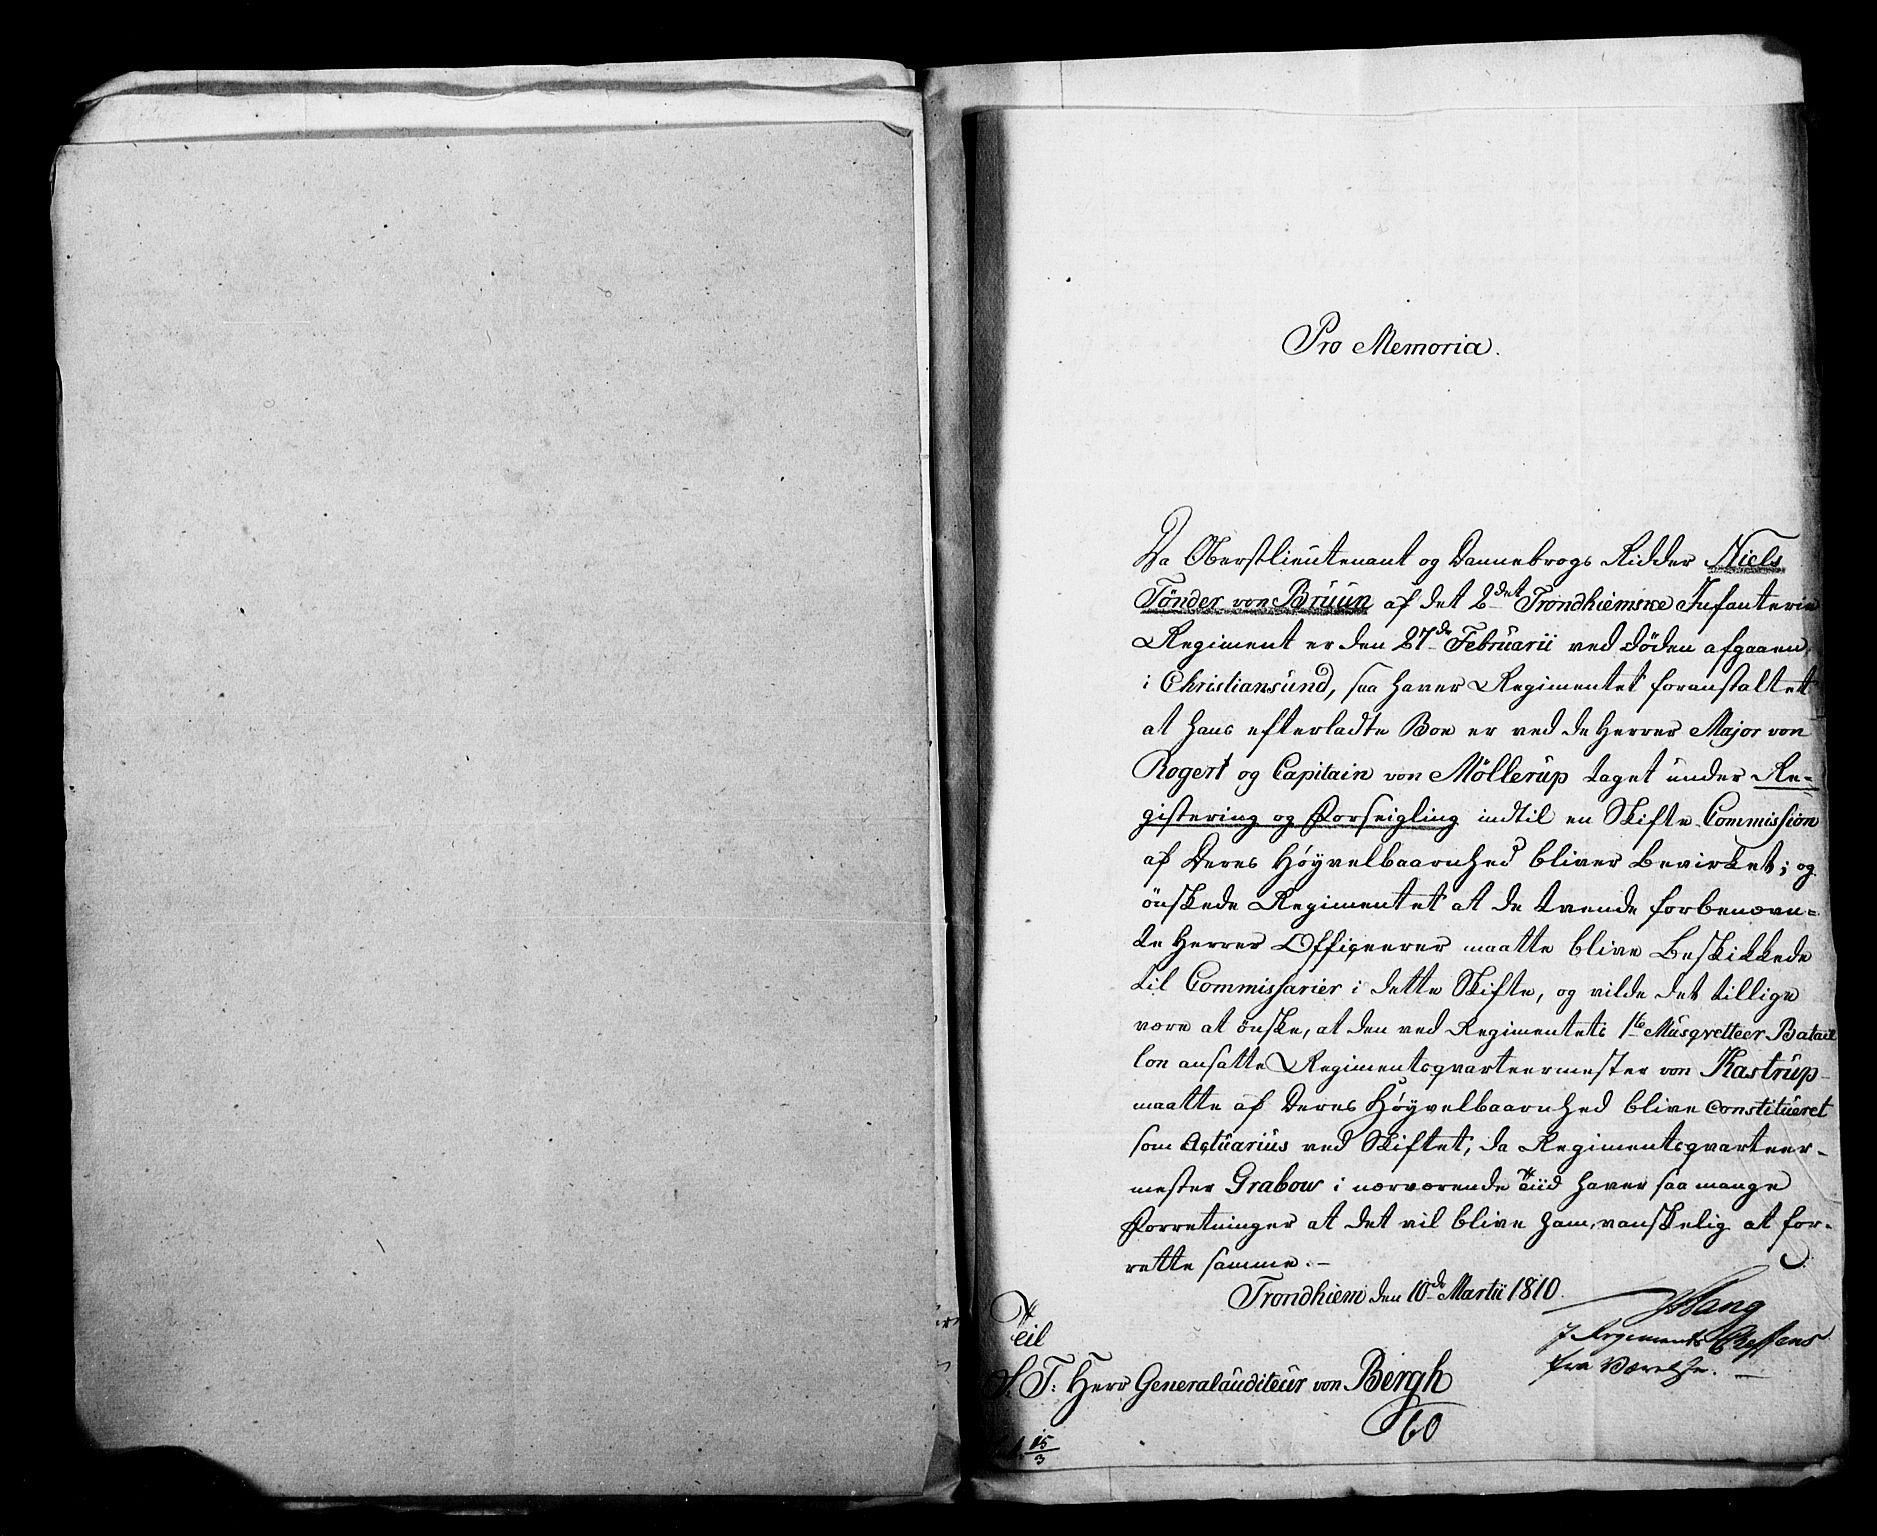 Pro Memoria.
Da Oberstlieutenant og Dannebrogs Ridder Niels
Tönder von Bruun af det 2det Trondhiemske Infanterie
Regiment er den 27de Februarii ved Döden afgaaen
i Christiansund, saa haver Regimentet foranstaltet
at hans efterladte Boe er ved de Herrer Major von
Rogert og Capitain von Möllerup taget under Re=
gistering og Forseigling indtil en Skifte Commission
af Deres Høyvelbaarnhed bliver bevirket; og
önskede Regimentet at de tvende forbenævn=
te Herrer Officeerer maatte blive beskikkede
til Commissarier i dette Skifte, og vilde det tillige
være at önske, at den ved Regimentets 1te Musqvetteer Batail
lon ansatte Regimentsqvarteermester von Kastrup
maatte af Deres Høyvelbaarnhed blive constitueret
som Actuarius ved Skiftet, da Regimentsqvarteer-
mester Grabow i nærværende Tiid haver saa mange
Forretninger at det vil blive ham vanskelig at for-
rette samme.-
Trondhiem den 10de Martii 1810.
Bang
J Regiments Cheffens
fra Værelse.
Til
S. T: Herr Generalauditeur von Bergh
60
15/3